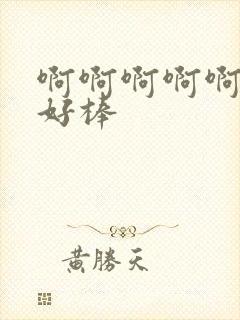 啊啊啊啊啊
好棒
黄勝天